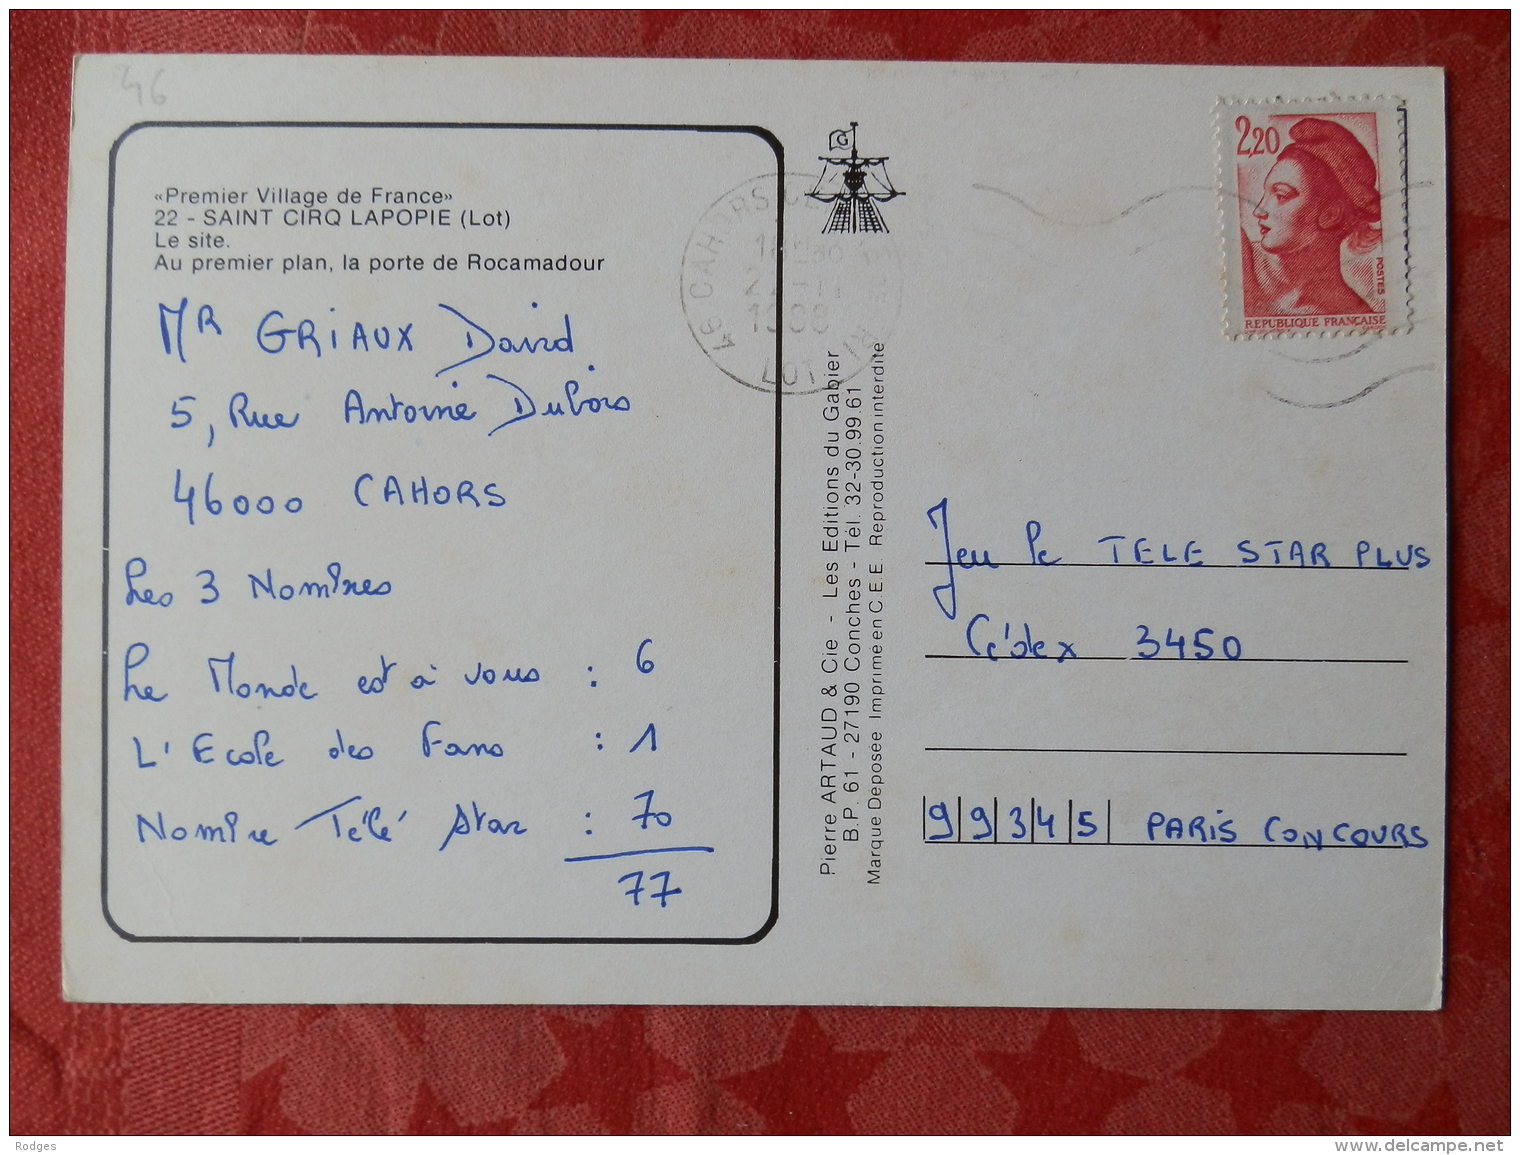 46
«Premier Village de France»
22 - SAINT CIRQ LAPOPIE (Lot)
Le site.
Au premier plan, la porte de Rocamadour
MR GRIAUX David
5, Rue Antoine Dubois
46000 CAHORS
Les 3 Nombres
Le Monde est à vous : 6
L'Ecole des Fans : 1
Nombre Télé Star : 70
77
G
46 CAHORS
1988
LOT
Pierre ARTAUD & Cie - Les Editions du Gabier
B.P. 61 - 27190 Conches - Tél. 32-30.99.61
Marque Deposée Imprimé en C.E.E. Reproduction interdite
2,20
POSTES
REPUBLIQUE FRANÇAISE
Jeu le TELE STAR PLUS
Cédex 3450
99345 PARIS CONCOURS
Rodges
www.delcampe.net